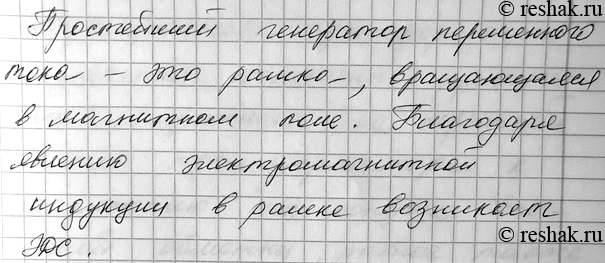 Простейший генератор переменного
тока – это рамка, вращающаяся
в магнитном поле. Благодаря
явлению электромагнитной
индукции в рамке возникает
ЭДС.
© reshak.ru
reshak.ru